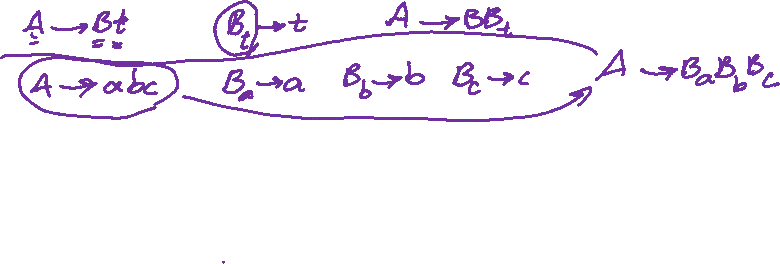 A → Bt B_t → t A → BB_t
A → abc B_a → a B_b → b B_c → c A → B_a B_b B_c